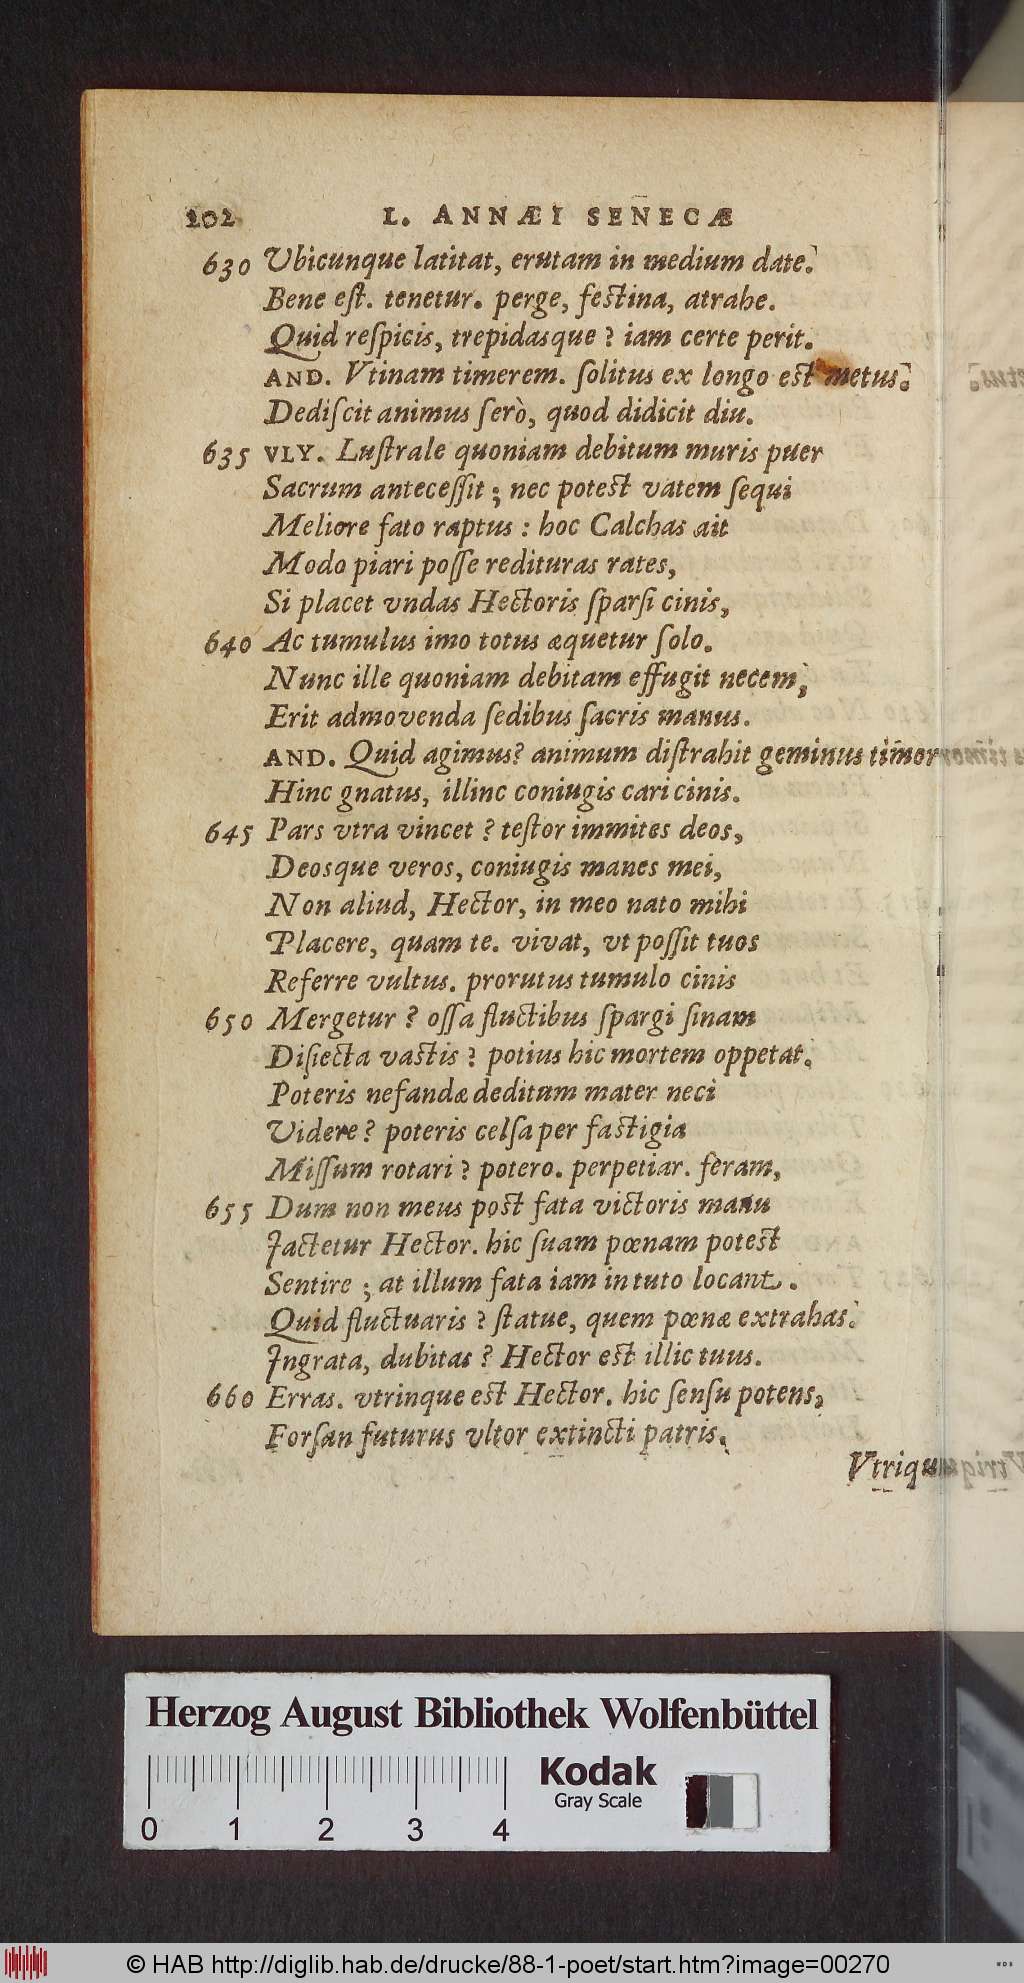 202 L. ANNÆI SENECÆ
630 Vbicunque latitat, erutam in medium date.
Bene eſt. tenetur. perge, feſtina, atrahe.
Quid reſpicis, trepidasque? iam certe perit.
AND. Vtinam timerem. ſolitus ex longo eſt metus.
Dediſcit animus ſerò, quod didicit diu.
635 VLY. Luſtrale quoniam debitum muris puer
Sacrum anteceſſit; nec poteſt vatem ſequi
Meliore fato raptus: hoc Calchas ait
Modo piari poſſe redituras rates,
Si placet vndas Hectoris ſparſi cinis,
640 Ac tumulus imo totus æquetur ſolo.
Nunc ille quoniam debitam effugit necem,
Erit admovenda ſedibus ſacris manus.
AND. Quid agimus? animum diſtrahit geminus timor
Hinc gnatus, illinc coniugis cari cinis.
645 Pars vtra vincet? teſtor immites deos,
Deosque veros, coniugis manes mei,
Non aliud, Hector, in meo nato mihi
Placere, quam te. vivat, vt poſſit tuos
Referre vultus. prorutus tumulo cinis
650 Mergetur? oſſa fluctibus ſpargi ſinam
Diſiecta vaſtis? potius hic mortem oppetat.
Poteris nefandæ deditum mater neci
Videre? poteris celſa per faſtigia
Miſſum rotari? potero. perpetiar. feram,
655 Dum non meus poſt fata victoris manu
Jactetur Hector. hic ſuam pœnam poteſt
Sentire; at illum fata iam in tuto locant.
Quid fluctuaris? ſtatue, quem pœnæ extrahas.
Jngrata, dubitas? Hector eſt illic tuus.
660 Erras. vtrinque eſt Hector. hic ſenſu potens,
Forſan futurus vltor extincti patris.
Vtriqu
Herzog August Bibliothek Wolfenbüttel
Kodak
Gray Scale
0 1 2 3 4
© HAB http://diglib.hab.de/drucke/88-1-poet/start.htm?image=00270